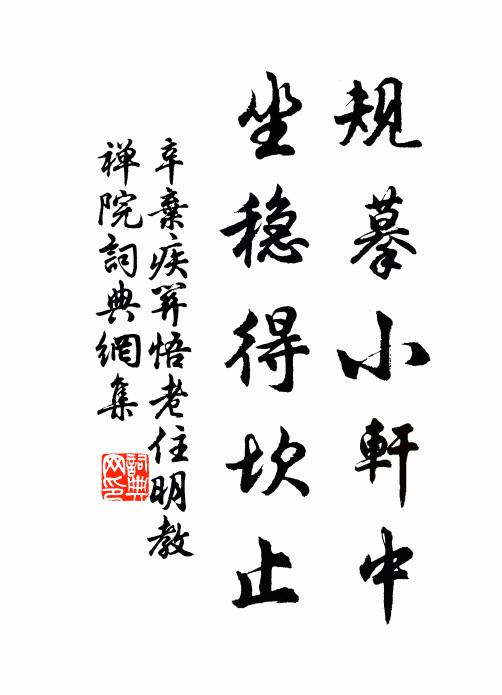 規摹小軒中
坐穩得坎止
辛棄疾箅悟老住明教
禪院詞典網集
詞典網印